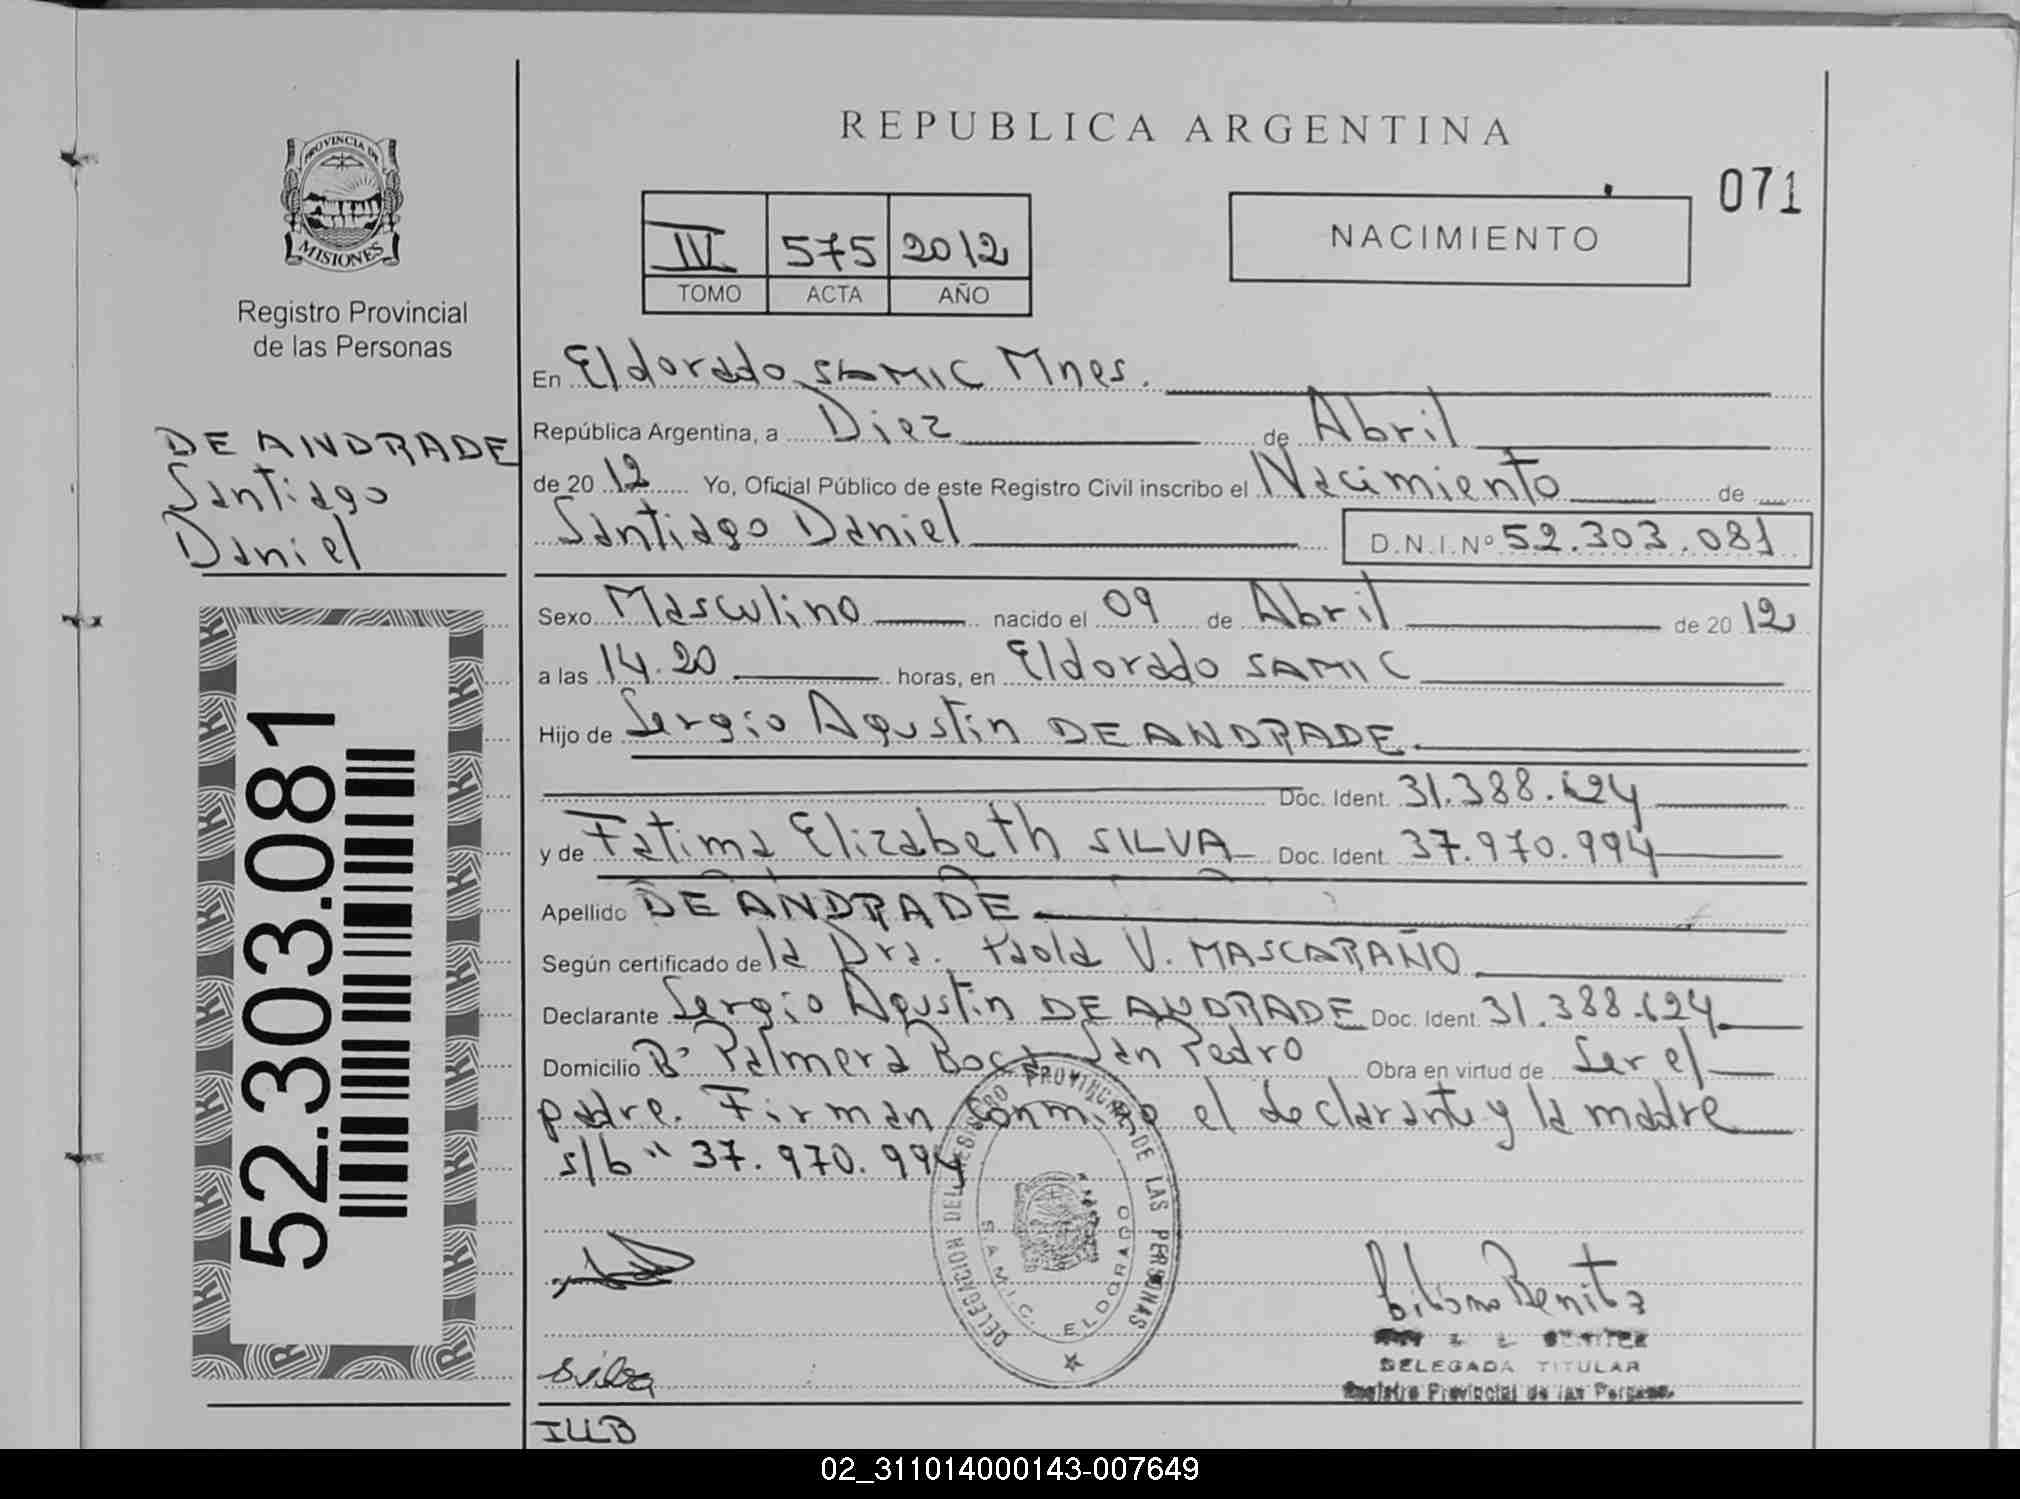 PROVINCIA DE
MISIONES
Registro Provincial
de las Personas
DE ANDRADE
Santiago
Daniel
52.303.081
REPUBLICA ARGENTINA
071
NACIMIENTO
III 575 2012
TOMO ACTA AÑO
En Eldorado SAMIC Mnes.
República Argentina, a Diez de Abril
de 20 12 Yo, Oficial Público de este Registro Civil inscribo el Nacimiento de
Santiago Daniel D.N.I.Nº 52.303.081
Sexo Masculino nacido el 09 de Abril de 20 12
a las 14.20 horas, en Eldorado SAMIC
Hijo de Sergio Agustin DE ANDRADE
Doc. Ident. 31.388.624
y de Fatima Elizabeth SILVA Doc. Ident. 37.970.994
Apellido DE ANDRADE
Según certificado de la Dra. Paola V. MASCARAÑO
Declarante Sergio Agustin DE ANDRADE Doc. Ident. 31.388.624
Domicilio Bº Palmera Boca San Pedro Obra en virtud de Ser el
padre. Firman conmigo el declarante y la madre
s/b" 37.970.994
DELEGACION DEL REGISTRO PROVINCIAL DE LAS PERSONAS
S.A.M.I.C. ELDORADO
Benitez
BENITEZ
DELEGADA TITULAR
Registro Provincial de las Personas
Silva
ILLB
02_311014000143-007649